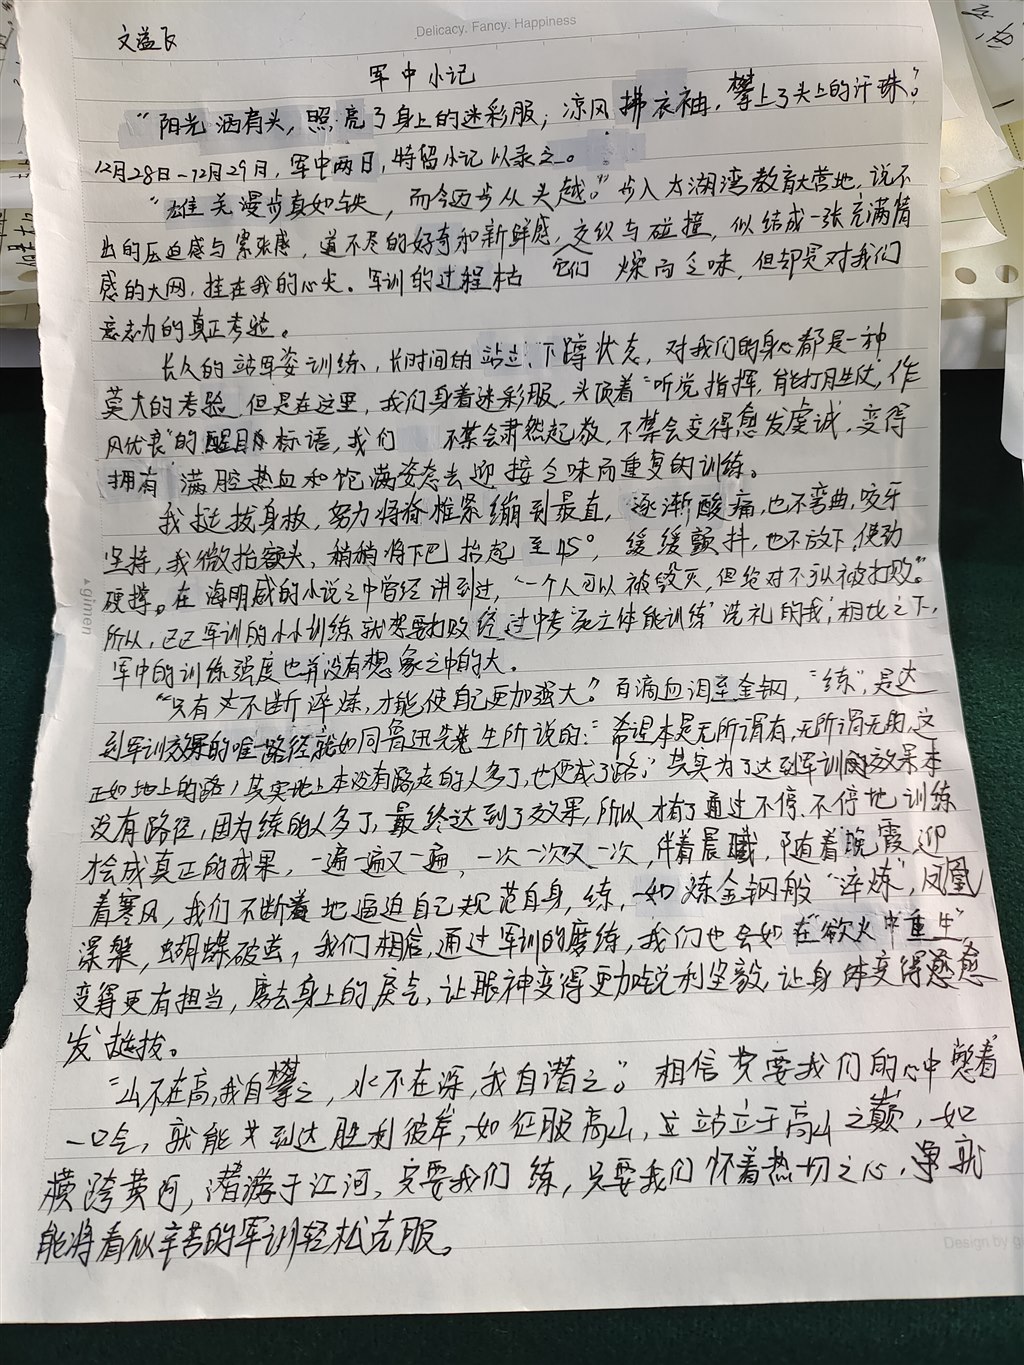 Delicacy. Fancy. Happiness
文溢飞
军中小记
“阳光洒肩头，照亮了身上的迷彩服；凉风拂衣袖，攀上了头上的汗珠。”
12月28日-12月29日，军中两日，特留小记以录之。
“雄关漫步真如铁，而今迈步从头越。”步入太湖湾教育大营地，说不
出的压迫感与紧张感，道不尽的好奇和新鲜感，交织与碰撞，似结成一张充满情
感的大网，挂在我的心尖。军训的过程枯 它们 燥而乏味，但却是对我们
意志力的真正考验。
长久的站军姿训练，长时间的站立、下蹲状态，对我们的身心都是一种
莫大的考验，但是在这里，我们身着迷彩服，头顶着“听党指挥，能打胜仗，作
风优良”的醒目标语，我们 不禁会肃然起敬，不禁会变得愈发虔诚，变得
拥有满腔热血和饱满姿态去迎接乏味而重复的训练。
我挺拔身板，努力将脊椎紧绷到最直，逐渐酸痛，也不弯曲，咬牙
坚持，我微抬额头，稍稍将下巴抬起至45°，缓缓颤抖，也不放下，使劲
硬撑。在海明威的小说之中曾经讲到过，“一个人可以被毁灭，但绝对不可以被打败。”
所以，区区军训的小小训练就想要打败经过中考“死亡体能训练”洗礼的我，相比之下，
军中的训练强度也并没有想象之中的大。
“只有不断淬炼，才能使自己更加强大。”百滴血泪至金钢，“练”，是达
到军训效果的唯一路径就如同鲁迅先生所说的：“希望本是无所谓有，无所谓无的，这
正如地上的路，其实地上本没有路走的人多了，也便成了路；”其实为了达到军训的效果本
没有路径，因为练的人多了，最终达到了效果，所以才有了通过不停、不停地训练
才会成真正的成果，一遍一遍又一遍，一次一次又一次，伴着晨曦，随着晚霞，迎
着寒风，我们不断着地逼迫自己规范自身，练，一如炼金钢般“淬炼”，凤凰
涅槃，蝴蝶破茧，我们相信，通过军训的磨练，我们也会如在“欲火中重生”，
变得更有担当，磨去身上的戾气，让眼神变得更加锐利坚毅，让身体变得愈愈
发挺拔。
“山不在高，我自攀之，水不在深，我自潜之。”相信只要我们的心中憋着
一口气，就能到达胜利彼岸，如征服高山，立站立于高山之巅，如
横跨黄河，潜游于江河，只要我们练，只要我们怀着热切之心，就
能将看似辛苦的军训轻松克服。
ginnen
Design by g